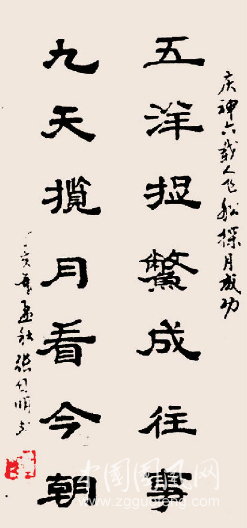 庆神六载人飞船探月成功
五洋捉鳖成往事
九天揽月看今朝
丁亥年孟秋张
中国国风网
www.zgguofeng.com